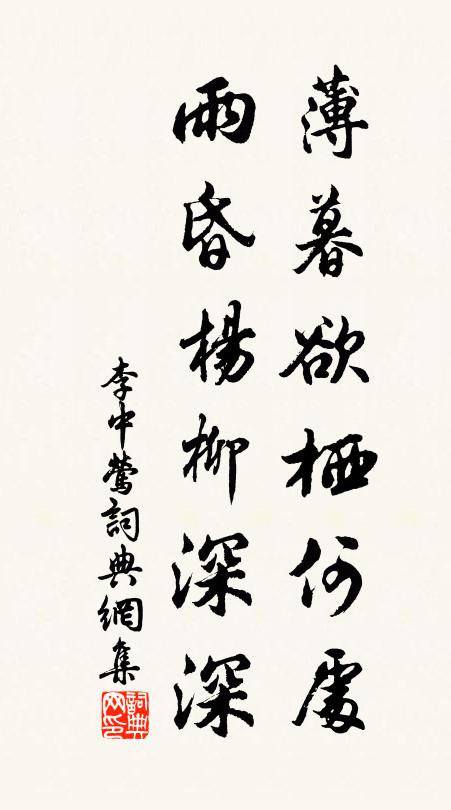 薄暮欲栖何處
雨昏楊柳深深
李中鶯詞典網集
詞典网印